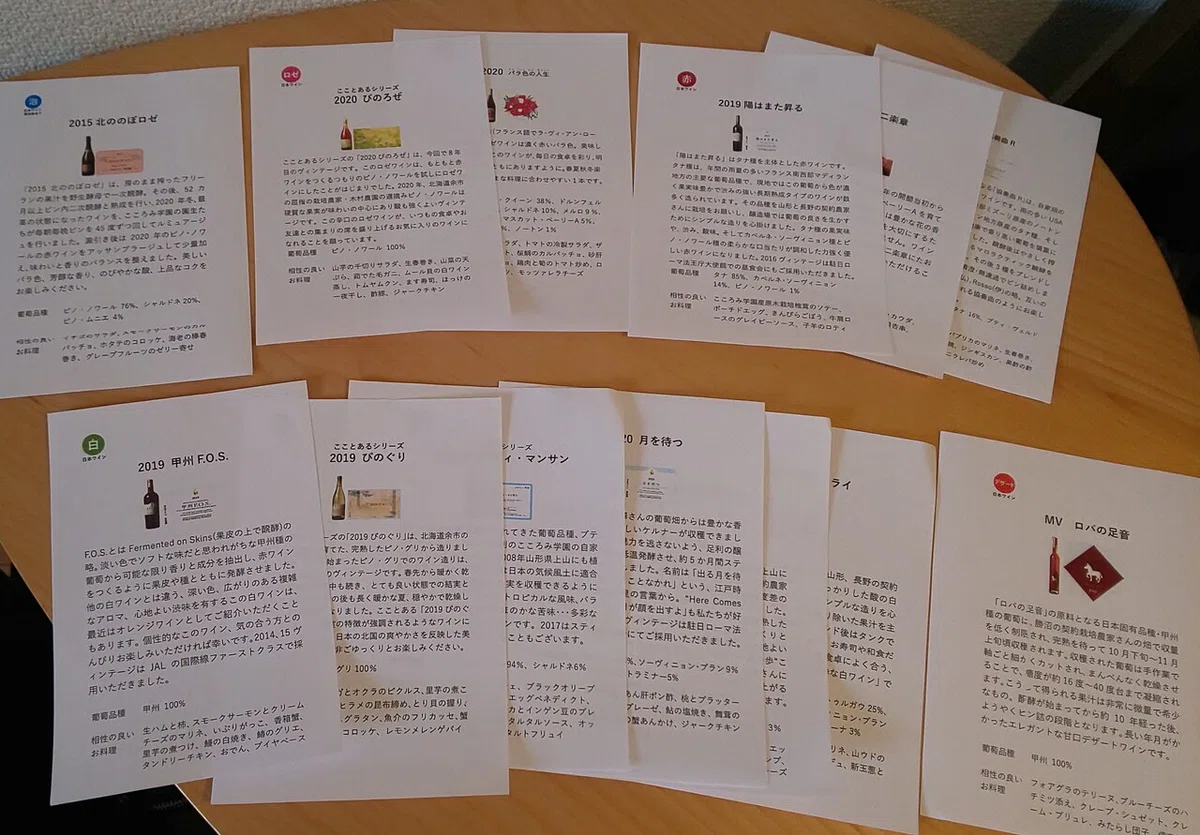 泡
日本ワイン
2015 北ののぼロゼ
「2015 北ののぼロゼ」は、房のまま搾ったフリー
ランの果汁を野生酵母で一次醗酵。その後、52 カ
月以上ビン内二次醗酵と熟成を行い、2020 年、冬最
の状態になったワインを、こころみ学園の園生た
ちが毎朝毎晩ビンを 45 度ずつ回してルミュアージ
ュを行いました。澱引き後に 2020 年のピノ・ノワ
ールの赤ワインをアッサンブラージュして少量加
え、味わいと香りのバランスを整えました。美しい
バラ色、芳醇な香り、のびやかな酸、上品なコクを
お楽しみください。
葡萄品種 ピノ・ノワール 76%、シャルドネ 20%、
ピノ・ムニエ 4%
相性の良い
お料理
パッチョ、ホタテのコロッケ、海老の棒春
巻き、グレープフルーツのゼリー寄せ
ロゼ
日本ワイン
こことあるシリーズ
2020 ぴのろぜ
こことあるシリーズの「2020 ぴのろぜ」は、今回で 8 年
目のヴィンテージです。このロゼワインは、もともと赤
ワインをつくるつもりのピノ・ノワールを試しにロゼワ
インにしたことがはじまりでした。2020 年、北海道余市
の屈指の栽培農家・木村農園の遅摘みピノ・ノワールは
硬質な果実が味わいの中心にあり最も強くよいヴィンテ
ージです。この辛口のロゼワインが、いつもの食卓やお
友達との集まりの席を盛り上げるお気に入りのワインに
なれることを願っています。
葡萄品種 ピノ・ノワール 100%
相性の良い
お料理
山芋の千切りサラダ、生春巻き、山菜の天
ぷら、茹でた毛ガニ、ムール貝の白ワイン
蒸し、トムヤムクン、ます寿司、ほっけの
一夜干し、酢豚、ジャークチキン
2020 バラ色の人生
(フランス語でラ・ヴィ・アン・ロー
ワインは濃く赤いバラ色。美味し
このワインが、毎日の食卓を彩り、明
ともにありますように。春夏秋冬楽
まな料理に合わせやすい 1 本です。
クイーン 38%、ドルンフェル
シャルドネ 10%、メルロ 9%、
マスカット・ベーリーA 5%、
%、ノートン 1%
ラダ、トマトの冷製サラダ、ザ
ト、桜鯛のカルパッチョ、砂肝
、鶏肉と筍のトマト炒め、ロ
ス、モッツァレラチーズ
赤
日本ワイン
2019 陽はまた昇る
「陽はまた昇る」はタナ種を主体とした赤ワインです。
タナ種は、年間の雨量の多いフランス南西部マディラン
地方の主要な葡萄品種で、現地ではこの葡萄から色が濃
く果実味豊かで渋みの強い長期熟成タイプのワインが数
多く造られています。その品種を山形と長野の契約農家
さんに栽培をお願いし、醸造場では葡萄の良さを生かす
ためにシンプルな造りを心掛けました。タナ種の果実味
や、渋み、酸味。そしてカベルネ・ソーヴィニョン種とピ
ノ・ノワール種の柔らかな口当たりが調和した力強く優
しい赤ワインになりました。2016 ヴィンテージは駐日ロ
ーマ法王庁大使館での昼食会にもご採用いただきました。
葡萄品種 タナ 85%、カベルネ・ソーヴィニョン
14%、ピノ・ノワール 1%
相性の良い
お料理
こころみ学園産原木栽培椎茸のソテー、
ポーチドエッグ、きんぴらごぼう、牛肩ロ
ースのグレイビーソース、子羊のロティ
二楽章
の開墾当初から
ベーリーA を育て
は豊かな花の香
を大切にするた
せん。ワイン
二楽章にたお
ただけるこ
カウダ、
協奏曲 R
白
日本ワイン
2019 甲州 F.O.S.
F.O.S.とは Fermented on Skins(果皮の上で醗酵)の
略。淡い色でソフトな味だと思われがちな甲州種の
葡萄から可能な限り香りと成分を抽出し、赤ワイン
をつくるように果皮や種とともに発酵させました。
他の白ワインとは違う、深い色、広がりのある複雑
なアロマ、心地よい渋味を有するこの白ワインは、
最近はオレンジワインとしてご紹介いただくこと
もあります。個性的なこのワイン、気の合う方との
んびりお楽しみいただければ幸いです。2014、15 ヴ
ィンテージは JAL の国際線ファーストクラスで採
用いただきました。
葡萄品種 甲州 100%
相性の良い
お料理
生ハムと柿、スモークサーモンとクリーム
チーズのマリネ、いぶりがっこ、香箱蟹、
里芋の煮つけ、鰻の白焼き、鯖のグリエ、
タンドリーチキン、おでん、ブイヤベース
こことあるシリーズ
2019 ぴのぐり
ーズの「2019 ぴのぐり」は、北海道余市の
育てた、完熟したピノ・グリから造りまし
始まったピノ・グリでのワイン造りは、
のヴィンテージです。春先から暖かく乾
中も続き、とても良い状態での結実と
の後も長く暖かな夏、穏やかで乾燥し
なりました。こことある「2019 ぴのぐ
の特徴が強調されるようなワインに
日本の北国の爽やかさを反映した美
非ごゆっくりとお楽しみください。
グリ 100%
がとオクラのピクルス、里芋の煮こ
ヒラメの昆布締め、とり貝の握り、
、グラタン、魚介のフリカッセ、蟹
コロッケ、レモンメレンゲパイ
シリーズ
ィ・マンサン
れてきた葡萄品種、プテ
のこころみ学園の自家
008年山形県上山にも植
は日本の気候風土に適合
実を収穫できるように
トロピカルな風味、バラ
のかな苦味・・・多彩な
す。2017はスティ
こともございます。
94%、シャルドネ6%
ェ、ブラックオリーブ
エッグベネディクト、
カとインゲン豆のプレ
タルタルソース、オッ
タルトフリュイ
20 月を待つ
さんの葡萄畑からは豊かな香
しいケルナーが収穫できまし
力を逃さないよう、足利の醸
低温発酵させ、約 5 か月間ステ
ました。名前は「出る月を待
ことなかれ」という、江戸時
の言葉から。"Here Comes
が顔を出すよ」も私たちが好
ヴィンテージは駐日ローマ法
にてご採用いただきました。
%、ソーヴィニョン・ブラン 9%
トラミナー5%
あん肝ポン酢、桃とブラッター
ブレーゼ、鮎の塩焼き、舞茸の
の蟹あんかけ、ジャークチキン
ライ
山形、長野の契約
っかりした酸の白
ンプルな造りを心
り除いた果汁を主
ンド後はタンクで
お寿司や和食だ
食卓によく合う、
な白ワイン」で
トゥルガウ 25%、
ニョン・ブラン
ーナ 3%
マリネ、山ウドの
デュ、新玉葱と
デザート
日本ワイン
MV ロバの足音
「ロバの足音」の原料となる日本固有品種・甲州
種の葡萄に、勝沼の契約栽培農家さんの畑で収量
を低く制限され、完熟を待って 10 月下旬～11 月
上旬頃収穫されます。収穫された葡萄は手作業で
軸ごと細かくカットされ、まんべんなく乾燥させ
ることで、糖度が約 16 度～40 度台まで凝縮され
ます。こうして得られる果汁は非常に微量で希少
なもの。醗酵が始まってから約 10 年経った後、
ようやくビン詰の段階となります。長い年月がか
かったエレガントな甘口デザートワインです。
葡萄品種 甲州 100%
相性の良い
お料理
フォアグラのテリーヌ、ブルーチーズのハ
チミツ添え、クレープ・シュゼット、クレ
ーム・ブリュレ、みたらし団子、